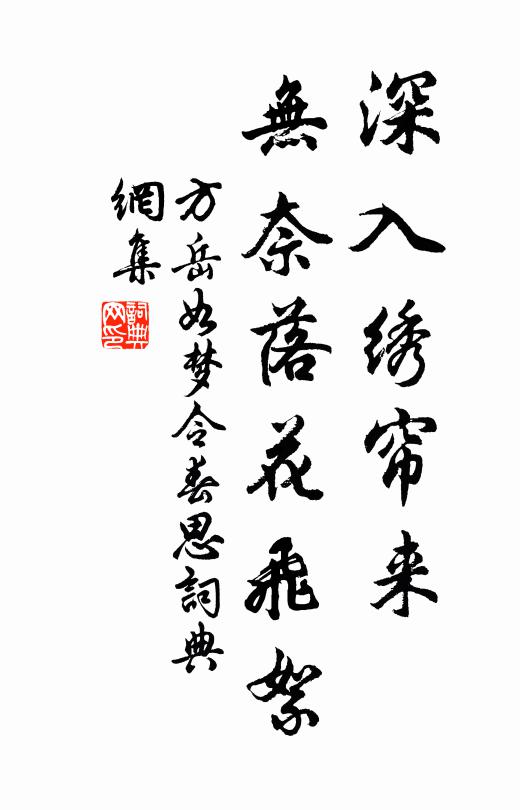 深入绣帘来
無奈落花飛絮
方岳如梦令春思詞典
網集
詞典
网印